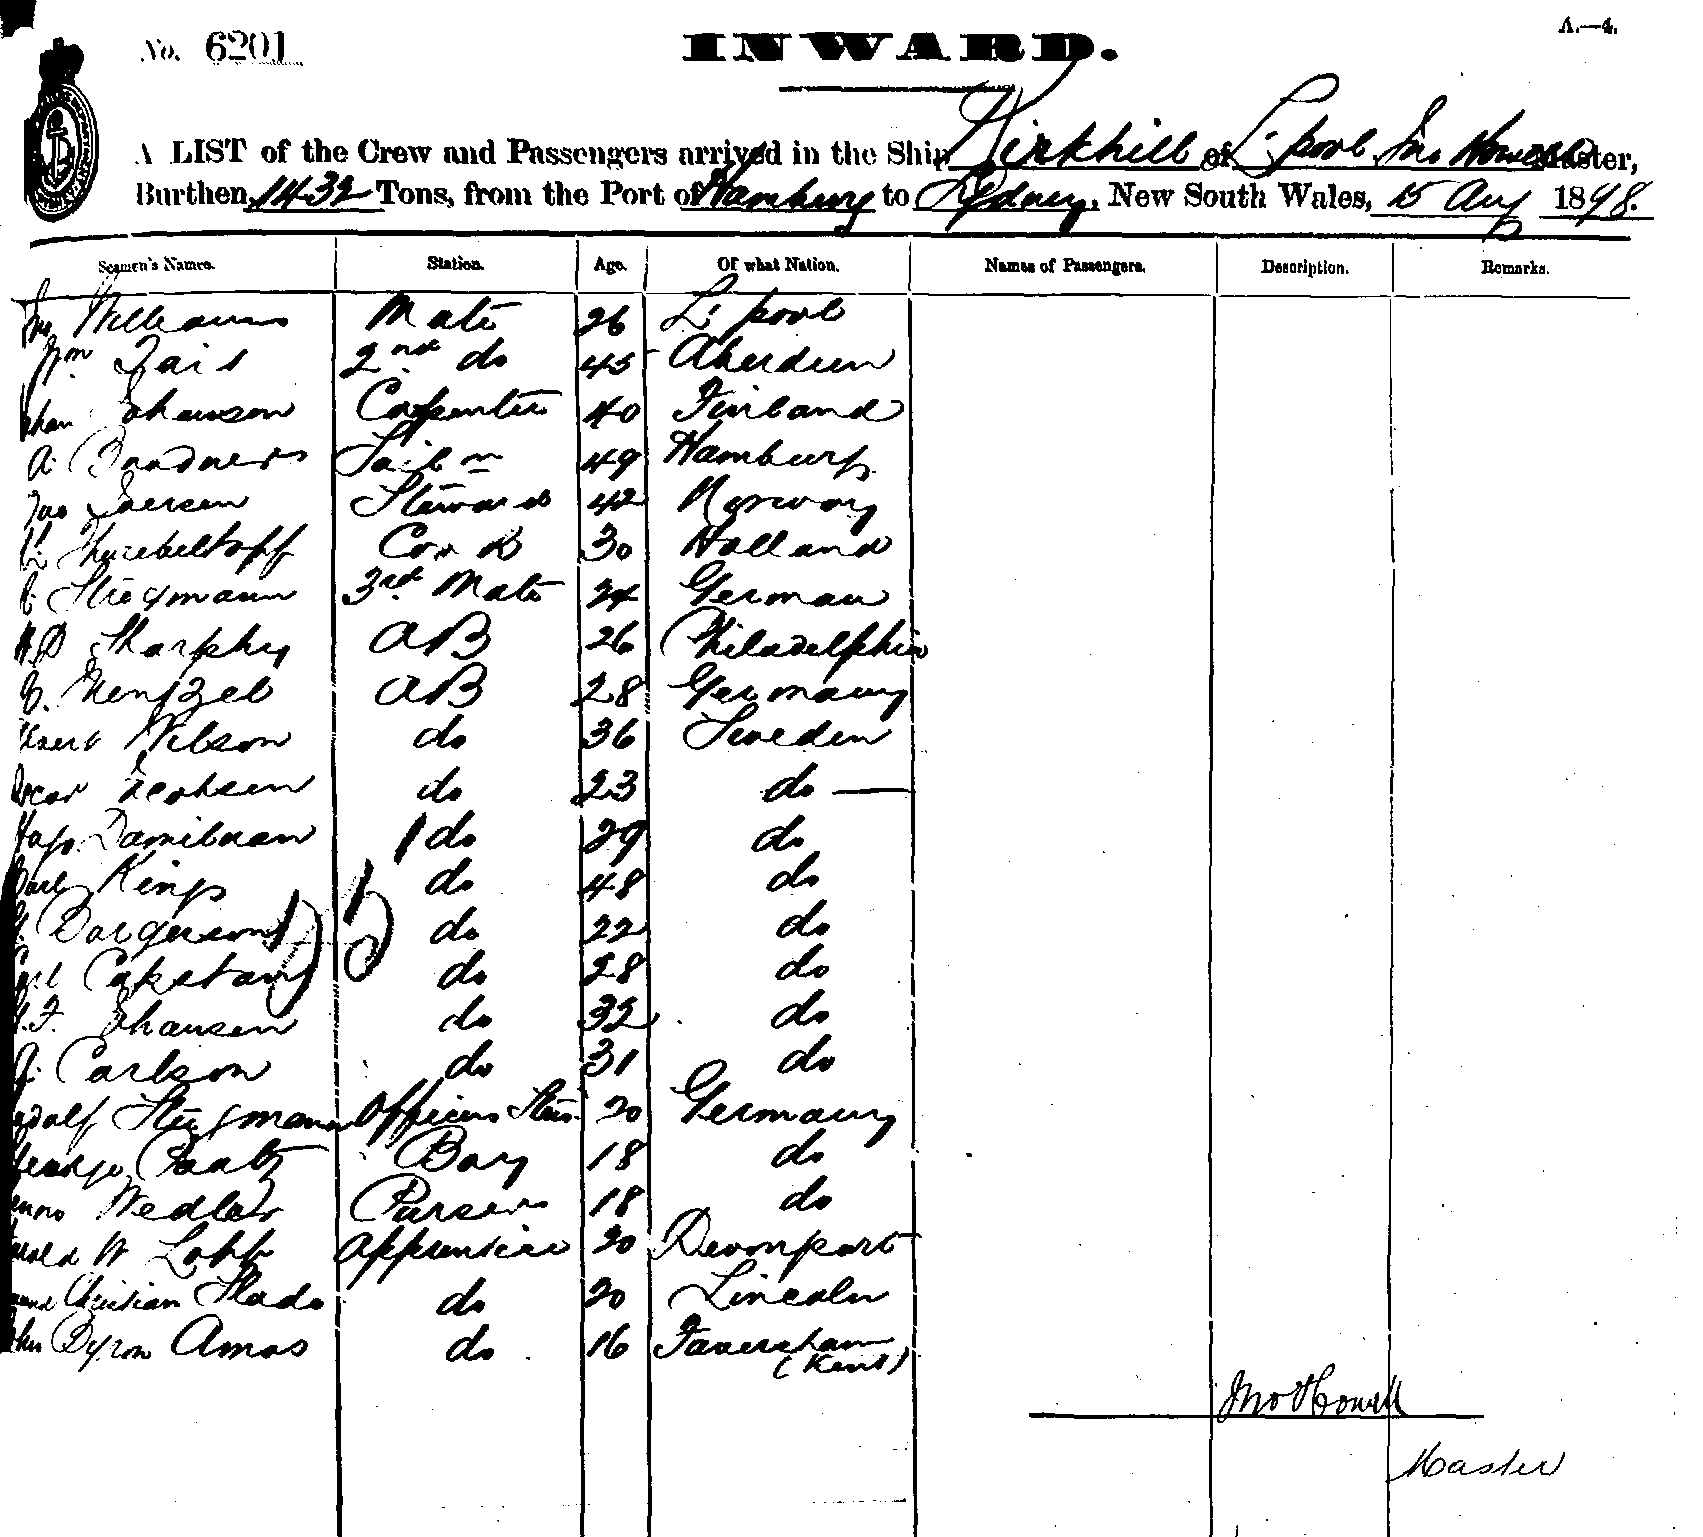 No. 6201
INWARD.
A.—4.
A LIST of the Crew and Passengers arrived in the Ship Kirkhill of L'pool Jno Howell Master,
Burthen, 1432 Tons, from the Port of Hamburg to Sydney, New South Wales, 15 Aug 1898.
Seamen's Names. Station. Age. Of what Nation. Names of Passengers. Description. Remarks.
Jno Williams Mate 26 L'pool
Wm 2nd do 45 Aberdeen
Johan Johanson Carpenter 40 Finland
A. Sailm 49 Hamburg
Iversen Steward 42 Norway
Cook 30 Holland
Stiegmann 3rd Mate 24 German
Sharphy AB 26 Philadelphia
Menzel AB 28 Germany
Nilson do 36 Sweden
Oscar Jacobsen do 23 do
do 29 do
Carl King do 48 do
Borgerson do 22 do
Carl do 28 do
Johansen do 32 do
Carlson do 31 do
Stiegmann Officers Stew. 20 Germany
George Paatz Boy 18 do
Wedler Purser 18 do
Harold W Lobb Apprentice 20 Devonport
Christian Slade do 20 Lincoln
John Byron Amos do 16 Faversham
(Kent)
Jno Howell
Master